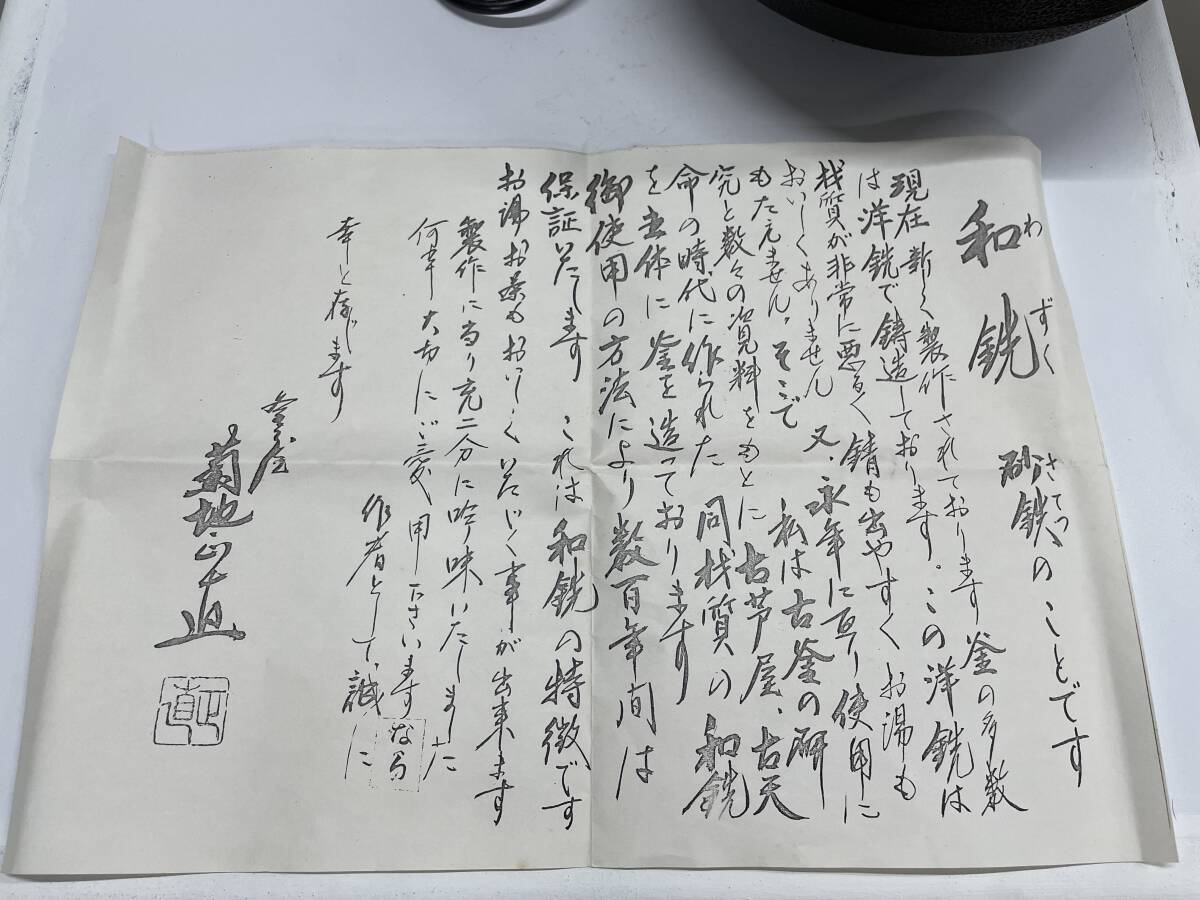 和銑 砂鉄のことです
わずく さてつ
現在新しく製作されております釜の多数
は洋銑で鋳造しております。この洋銑は
材質が非常に悪るく錆も出やすくお湯も
おいしくありません 又、永年に亘り使用に
もたえません、そこで 私は古釜の研
究と数々の資料をもとに古芦屋、古天
命の時代に作られた同材質の和銑
を主体に釜を造っております
御使用の方法により数百年間は
保証いたします これは和銑の特徴です
お湯お茶もおいしくいただく事が出来ます
製作に当り充二分に吟味いたしました
何卒大切にご愛用下さいます なら
作者として、誠に
幸と存じます
釜屋
菊地正直
正直